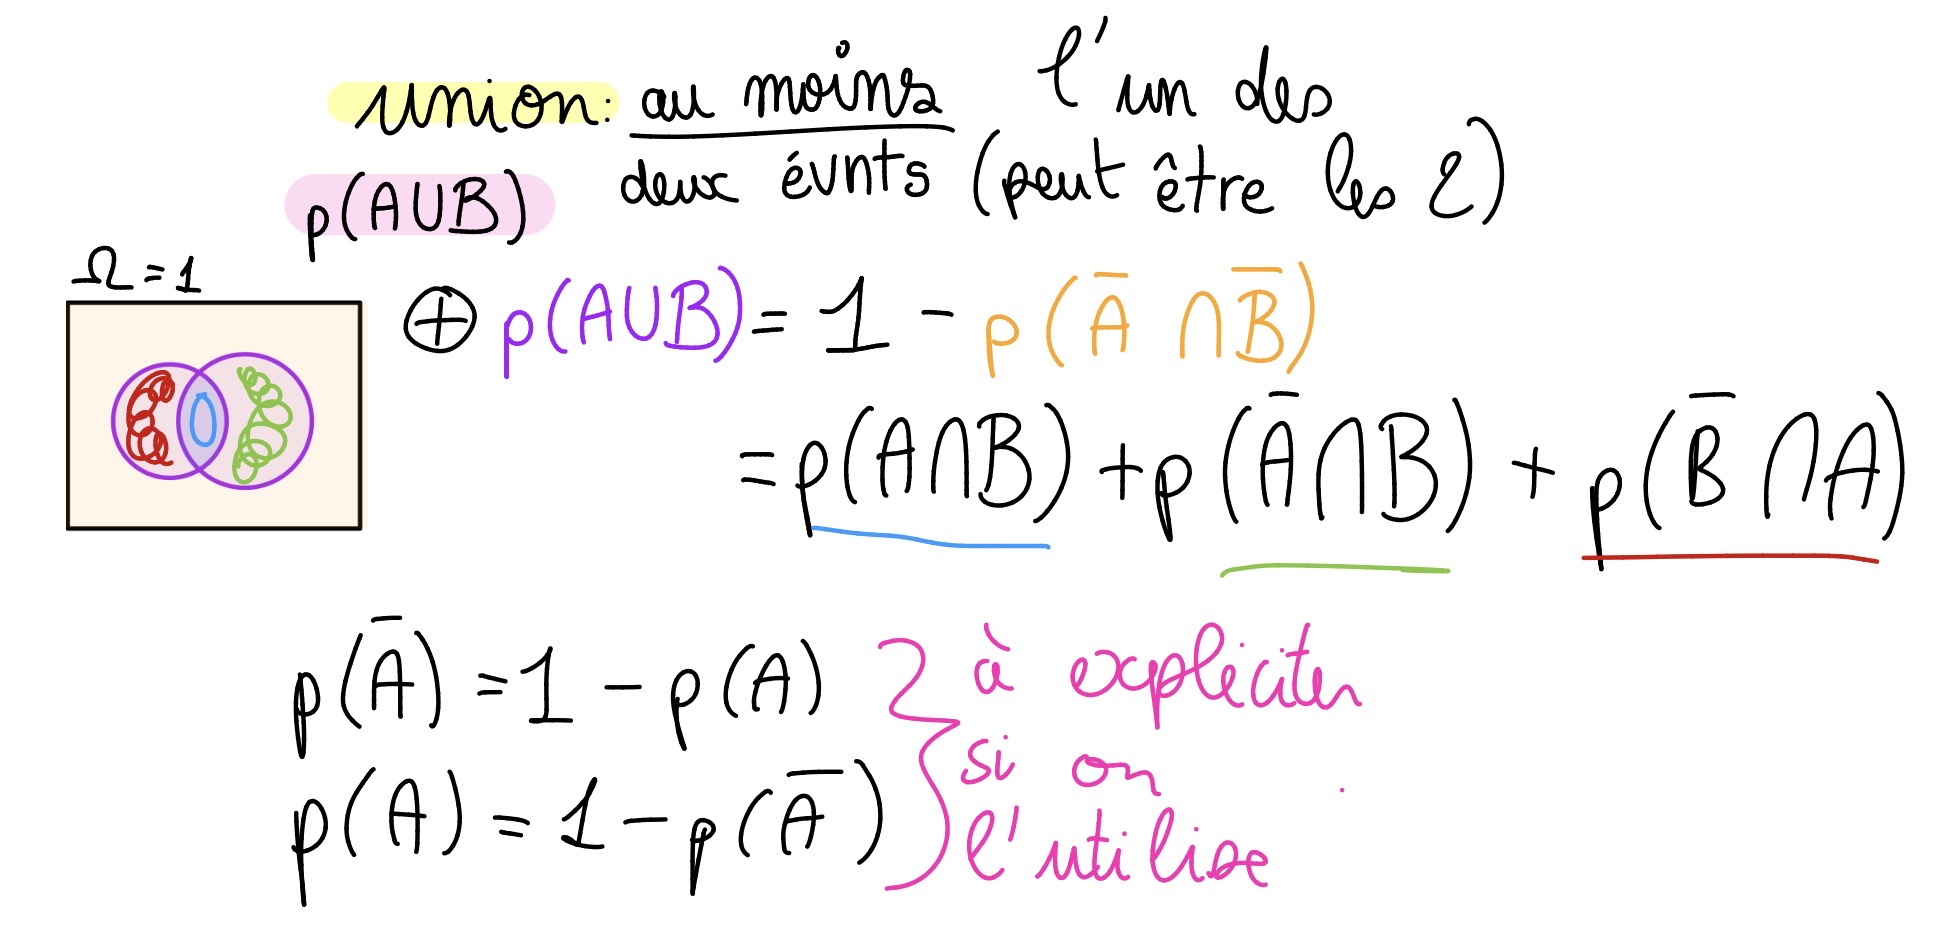 union: au moins l'un des
deux évnts (peut être les 2)
p(A∪B)
Ω = 1
⊕ p(A∪B) = 1 - p(A̅ ∩ B̅)
= p(A∩B) + p(A̅∩B) + p(B̅∩A)
p(A̅) = 1 - p(A)
p(A) = 1 - p(A̅)
à expliciter
si on
l'utilise